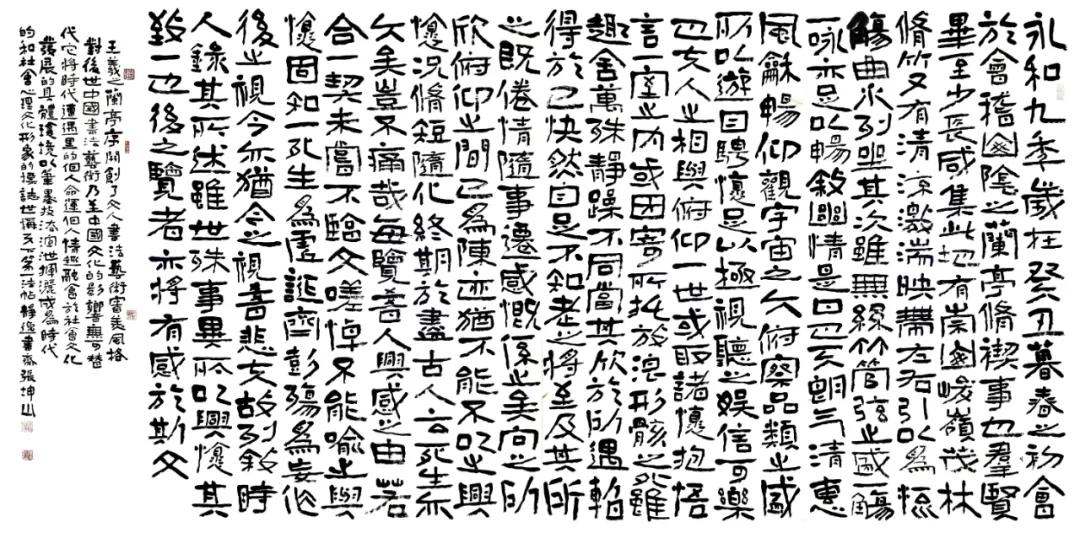 永和九年歲在癸丑暮春之初會
於會稽山陰之蘭亭脩禊事也羣賢
畢至少長咸集此地有崇山峻嶺茂林
脩竹又有清流激湍映帶左右引以為流
觴曲水列坐其次雖無絲竹管弦之盛一觴
一詠亦足以暢敘幽情是日也天朗气清惠
風龢暢仰觀宇宙之大俯察品類之盛
所以遊目騁懷足以極視聽之娛信可樂
也夫人之相與俯仰一世或取諸懷抱悟
言一室之內或因寄所託放浪形骸之雖
趣舍萬殊靜躁不同當其欣於所遇暫
得於己快然自足不知老之將至及其所
之既倦情隨事遷感慨係之矣向之所
欣俯仰之間已為陳迹猶不能不以之興
懷況脩短隨化終期於盡古人云死生亦
大矣豈不痛哉每覽昔人興感之由若
合一契未嘗不臨文嗟悼不能喻之與
懷固知一死生為虛誕齊彭殤為妄作
後之視今亦猶今之視昔悲夫故列敘時
人錄其所述雖世殊事異所以興懷其
致一也後之覽者亦將有感於斯文
王羲之蘭亭序開創了文人書法藝術審美風格
對後世中國書法藝術乃至中國文化的影響無可替
代它將時代遭遇里的個人命運個人情趣融會於社會文化
發展的具體環境以筆墨技法宣泄揮灑成為時代
的和社會心理文化形象的標誌世偁天下第一法帖靜遠書齋張坤山